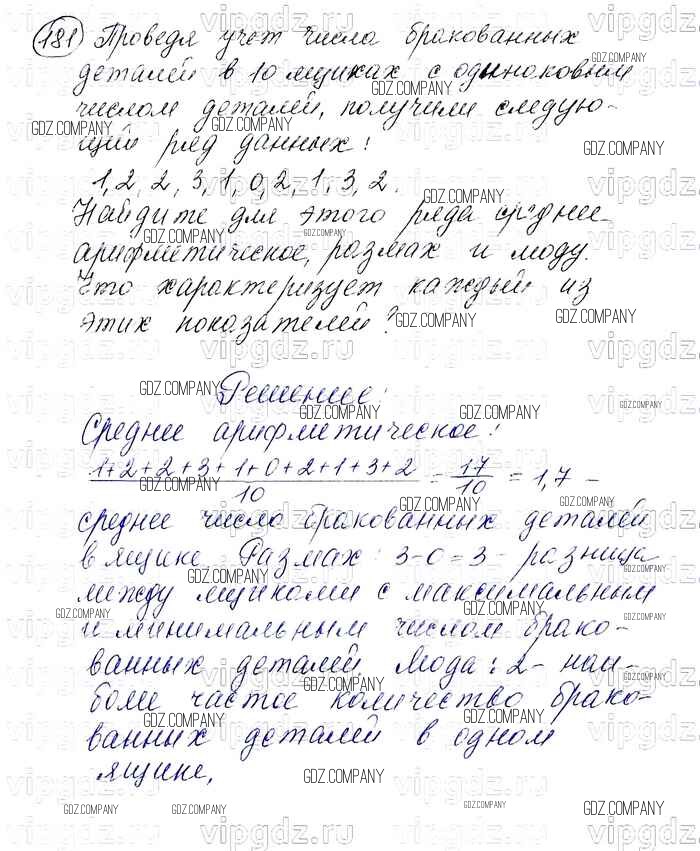 181 Проведя учет числа бракованных
деталей в 10 ящиках с одинаковым
числом деталей, получили следую-
щий ряд данных:
1, 2, 2, 3, 1, 0, 2, 1, 3, 2.
Найдите для этого ряда среднее
арифметическое, размах и моду.
Что характеризует каждый из
этих показателей?
Решение:
Среднее арифметическое:
1+2+2+3+1+0+2+1+3+2 / 10 = 17/10 = 1,7 -
среднее число бракованных деталей
в ящике. Размах: 3-0=3 - разница
между ящиками с максимальным
и минимальным числом брако-
ванных деталей. Мода: 2 - наи-
более частое количество брако-
ванных деталей в одном
ящике.
GDZ.COMPANY
vipgdz.ru